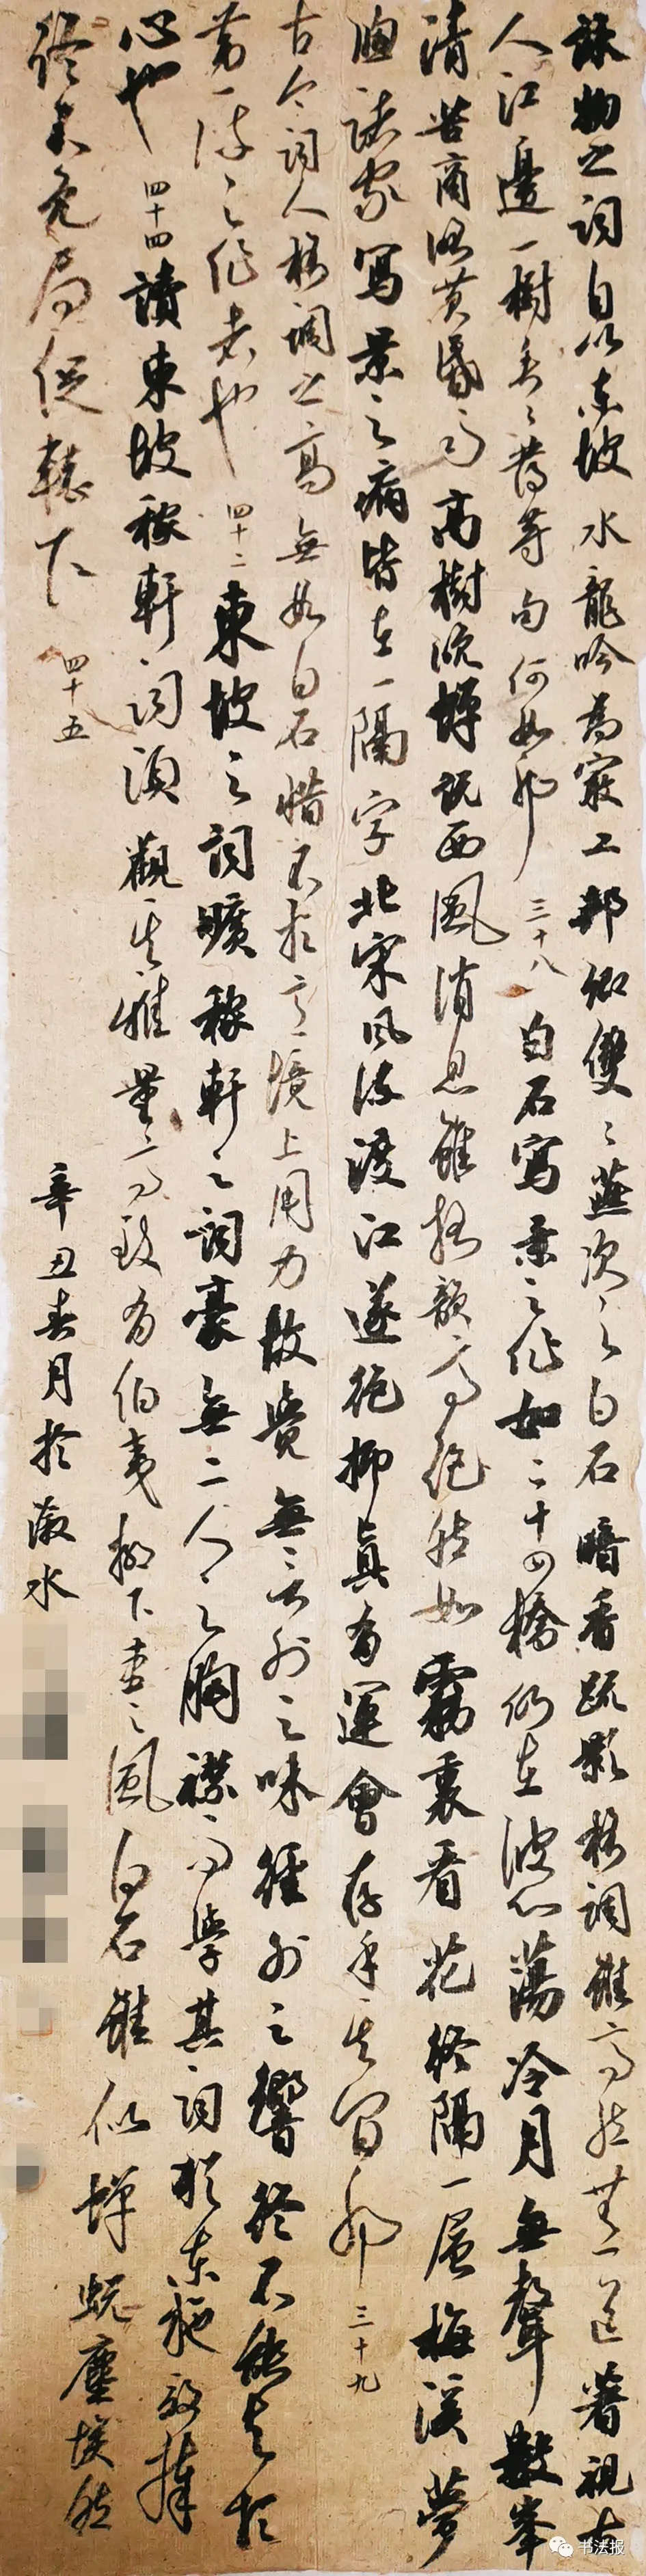 詠物之詞自以東坡水龍吟為最工邦卿雙〻燕次之白石暗香疏影格調雖高然無一道著視古
人江邊一樹垂〻發等句何如耶 三十八 白石寫景之作如二十四橋仍在波心蕩冷月無聲數峯
清苦商略黃昏雨高樹晚蟬說西風消息雖格韻高絕然如霧裏看花終隔一層梅溪夢
窗諸家寫景之病皆在一隔字北宋風流渡江遂絕抑真有運會存乎其間耶 三十九
古今詞人格調之高無如白石惜不於意境上用力故覺無言外之味絃外之響終不能與於
第一流之作者也 四十二 東坡之詞曠稼軒之詞豪無二人之胸襟而學其詞猶東施之效捧
心也 四十四 讀東坡稼軒詞須觀其雅量高致有伯夷柳下惠之風白石雖似蟬蛻塵埃然
終不免局促轅下 四十五
辛丑春月於淑水
书法报